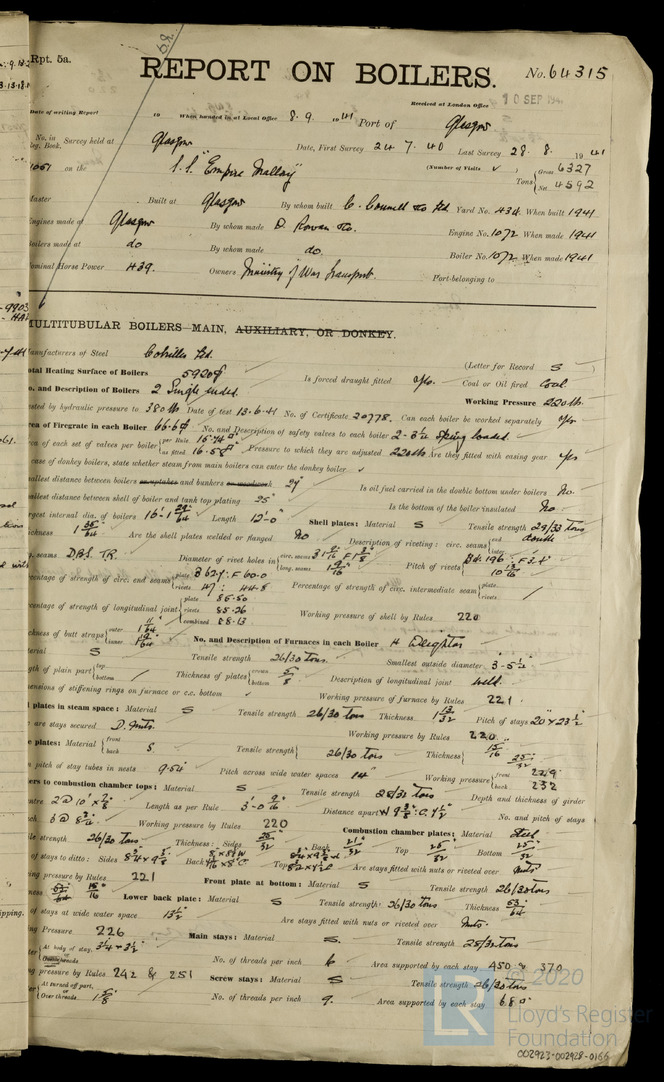 Rpt. 5a.
REPORT ON BOILERS.
No. 64315
Received at London Office
10 SEP 194
Date of writing Report 19 When handed in at Local Office 8. 9. 1941 Port of Glasgow
No. in Reg. Book. Survey held at Glasgow Date, First Survey 24 7. 40 Last Survey 28. 8. 1941
on the S.S. "Empire Mallory" (Number of Visits ) Tons Gross 6327 Net 4592
Master Built at Glasgow By whom built C. Connell & Co Ltd Yard No. 434 When built 1941
Engines made at Glasgow By whom made D. Rowan & Co. Engine No. 1072 When made 1941
Boilers made at do By whom made do. Boiler No. 1072 When made 1941
Nominal Horse Power 439. Owners Ministry of War Transport. Port belonging to
MULTITUBULAR BOILERS MAIN, AUXILIARY, OR DONKEY.
Manufacturers of Steel Colvilles Ltd. (Letter for Record S )
Total Heating Surface of Boilers 5920 Is forced draught fitted yes. Coal or Oil fired Coal.
No. and Description of Boilers 2 Single ended. Working Pressure 220 lb.
Tested by hydraulic pressure to 380 lb Date of test 13.6.41 No. of Certificate 20778. Can each boiler be worked separately yes
Area of Firegrate in each Boiler 66.6 No. and Description of safety valves to each boiler 2 - 3½ Spring loaded.
Area of each set of valves per boiler per Rule as fitted Pressure to which they are adjusted 220 lb Are they fitted with easing gear yes
case of donkey boilers, state whether steam from main boilers can enter the donkey boiler
Smallest distance between boilers or uptakes and bunkers or woodwork Is oil fuel carried in the double bottom under boilers No.
Smallest distance between shell of boiler and tank top plating 25" Is the bottom of the boiler insulated No.
Largest internal dia. of boilers 16'-1 29/64 Length 12'-0" Shell plates: Material S Tensile strength 29/33 tons
Thickness 1 35/64 Are the shell plates welded or flanged No Description of riveting: circ. seams end double
long. seams D.B.S. TR. Diameter of rivet holes in circ. seams long. seams Pitch of rivets
Percentage of strength of circ. end seams plate B 62.7 : F 60.0 rivets 47 : 44.8 Percentage of strength of circ. intermediate seam plate rivets
Percentage of strength of longitudinal joint plate 85.50 rivets 85.26 combined 88.13 Working pressure of shell by Rules 220
Thickness of butt straps outer inner No. and Description of Furnaces in each Boiler 4 Deighton
Material S Tensile strength 26/30 tons Smallest outside diameter 3'-5½"
Length of plain part top bottom Thickness of plates crown bottom 5/8 Description of longitudinal joint weld.
Dimensions of stiffening rings on furnace or c.c. bottom Working pressure of furnace by Rules 221
plates in steam space: Material S Tensile strength 26/30 tons Thickness 1 13/32 Pitch of stays 20" x 23½"
are stays secured D. nuts. Working pressure by Rules 220
plates: Material front back S Tensile strength 26/30 tons Thickness 15/16 25/32
pitch of stay tubes in nests 9.54 Pitch across wide water spaces 14 Working pressure front 229 back 232
Girders to combustion chamber tops: Material S Tensile strength 28/32 tons Depth and thickness of girder
centre 2 @ 10" x Length as per Rule 3'-0 9/16 Distance apart No. and pitch of stays
each 3 @ 8¾ Working pressure by Rules 220 Combustion chamber plates: Material Steel
Tensile strength 26/30 tons Thickness: Sides 25/32 Back 21/32 Top 25/32 Bottom 25/32
of stays to ditto: Sides Back Top Are stays fitted with nuts or riveted over Nuts
Working pressure by Rules 221 Front plate at bottom: Material S Tensile strength 26/30 tons
15/16 Lower back plate: Material S Tensile strength 26/30 tons Thickness 53/64
of stays at wide water space 13½ Are stays fitted with nuts or riveted over Nuts.
Working Pressure 226 Main stays: Material S. Tensile strength 28/32 tons
At body of stay, or Over threads 3¼ + 3½ No. of threads per inch 6 Area supported by each stay 450 & 370
Working pressure by Rules 242 & 251 Screw stays: Material S Tensile strength 26/30 tons
At turned off part, or Over threads 1 5/8 No. of threads per inch 9. Area supported by each stay 68
© 2020
Lloyd's Register
Foundation
002923-002928-0166